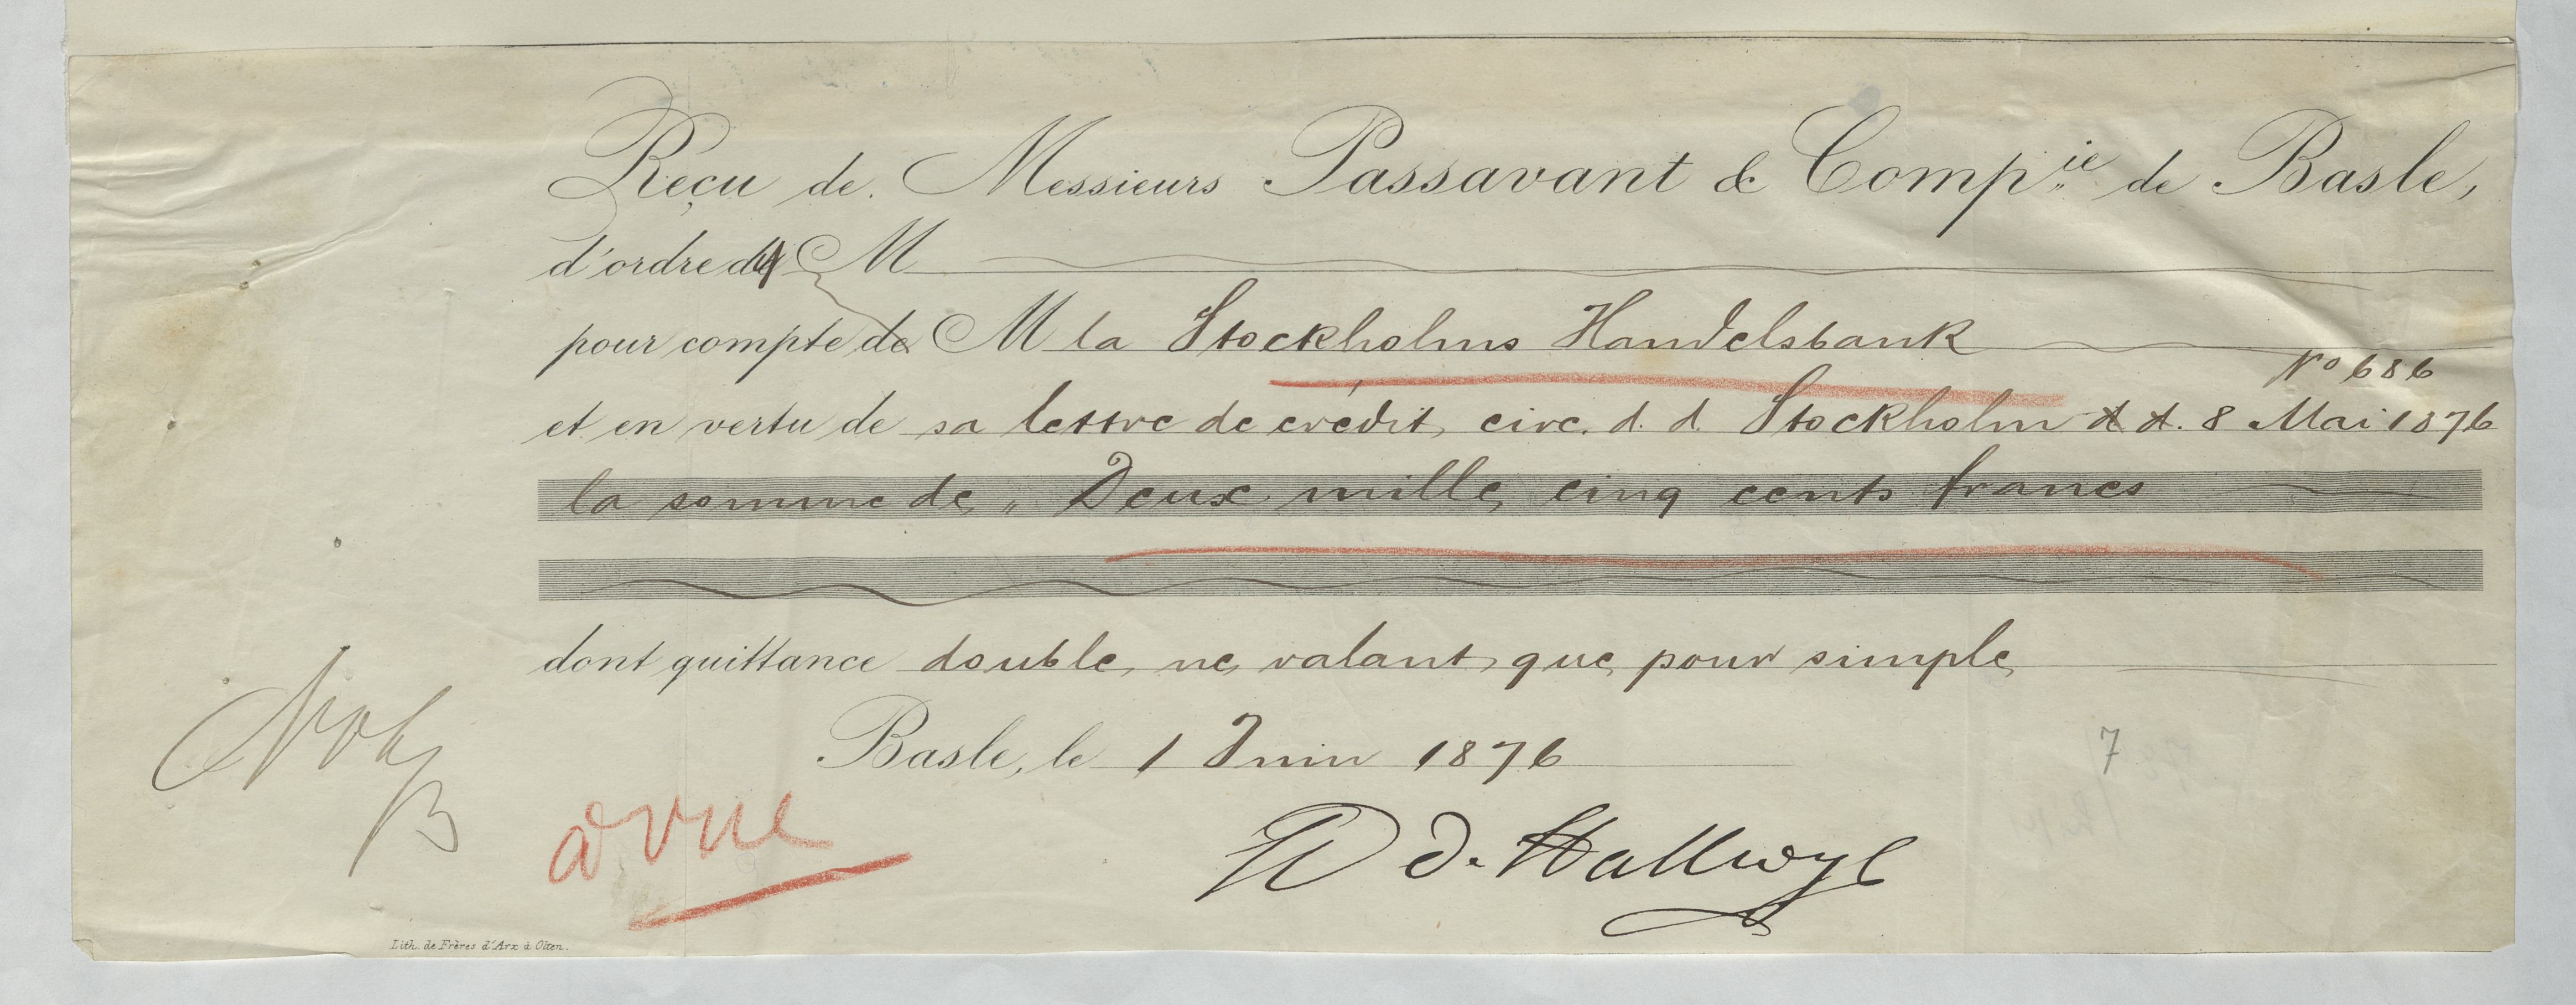 Reçu de Messieurs Passavant & Comp.ie de Basle,
d'ordre de M
pour compte de M la Stockholms Handelsbank
No 686
et en vertu de sa lettre de crédit circ. d. d. Stockholm d d. 8 Mai 1876
la somme de „ Deux mille cinq cents francs
dont quittance double ne valant que pour simple
Basle, le 1 Juin 1876
7
à vue
W d. Hallwyl
Lith. de Frères d'Arx à Olten.